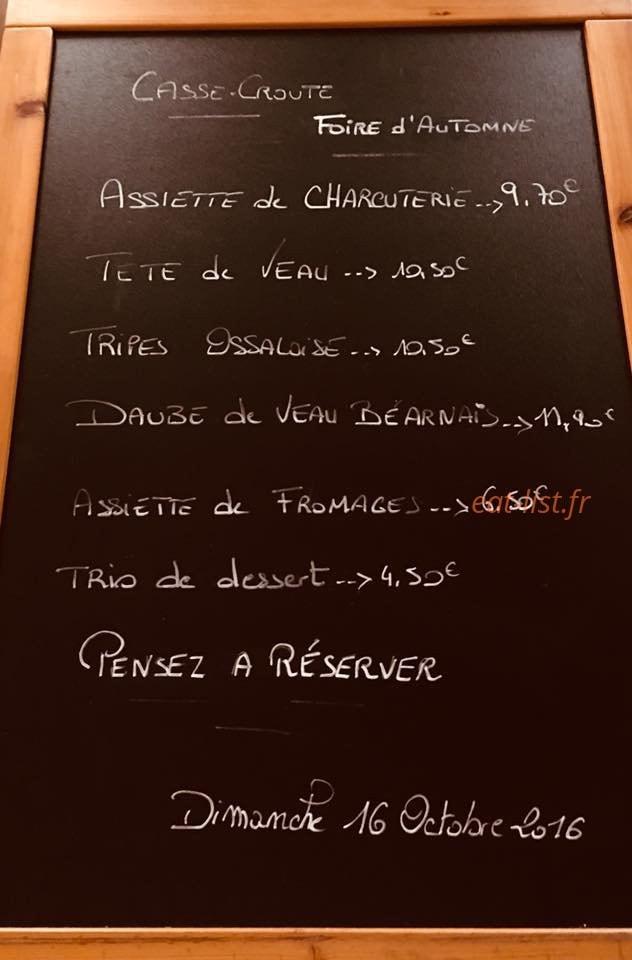 CASSE-CROUTE
FOIRE d'AUTOMNE
ASSIETTE de CHARCUTERIE --> 9,70€
TETE de VEAU --> 10,50€
TRIPES OSSALOISE --> 10,50€
DAUBE de VEAU BÉARNAIS --> 11,90€
ASSIETTE de FROMAGES --> 6,50€
eat-list.fr
TRIO de dessert --> 4,50€
PENSEZ A RÉSERVER
Dimanche 16 Octobre 2016